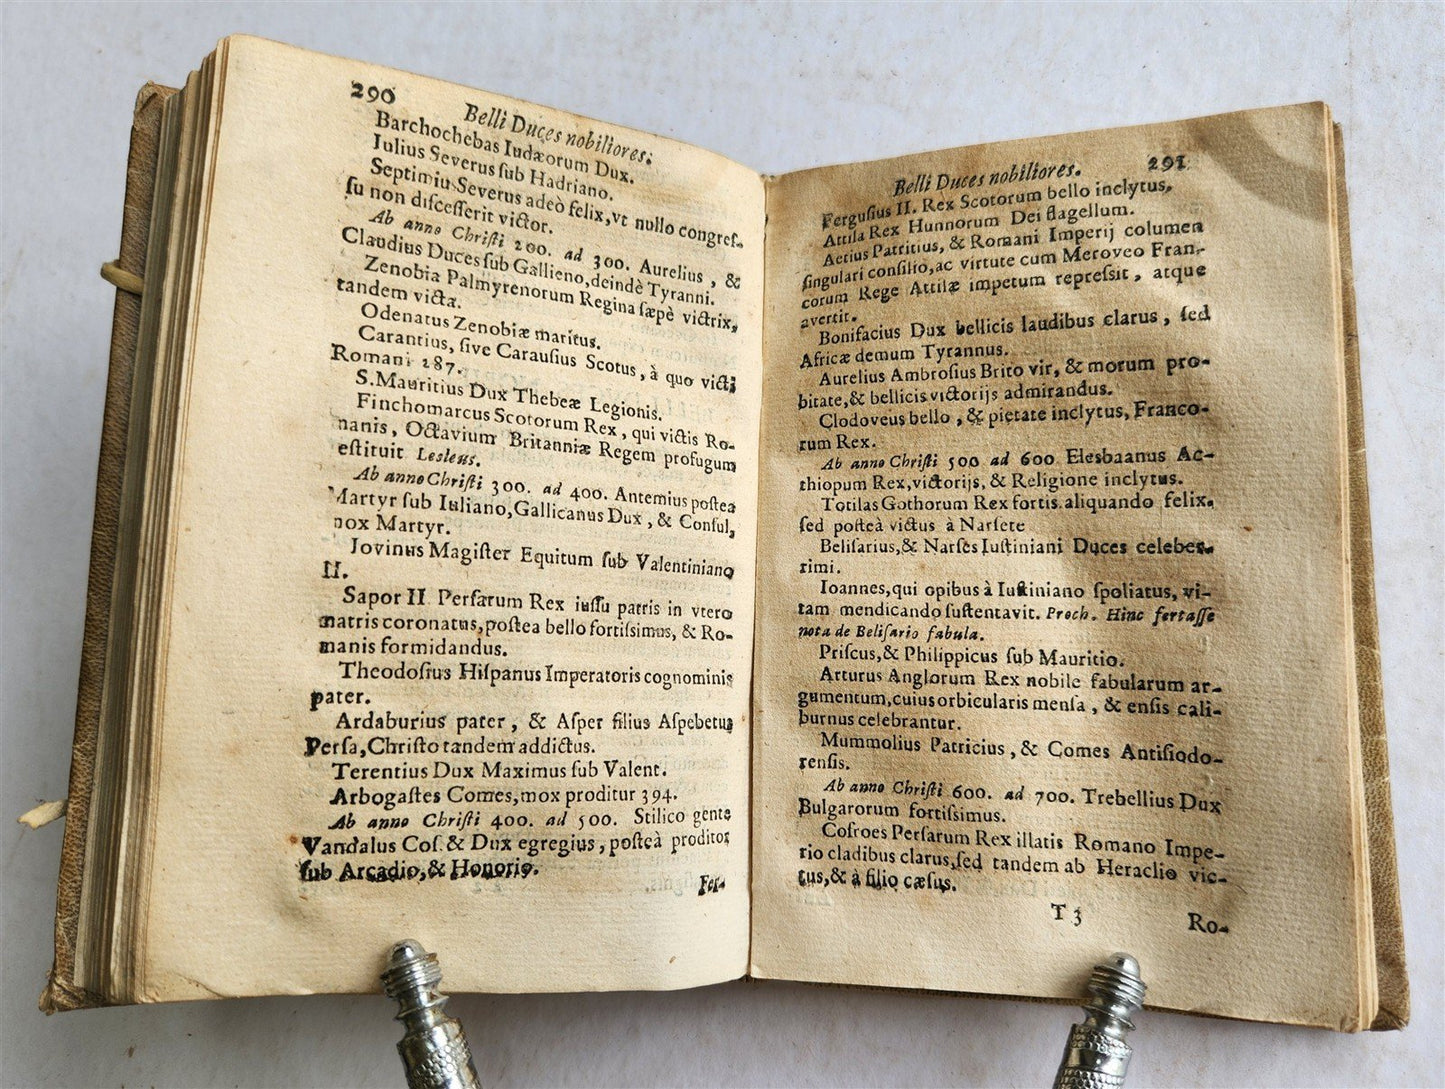 290 Belli Duces nobiliores.
Barchochebas Iudæorum Dux.
Julius Severus ſub Hadriano.
Septimiu Severus adeò felix, vt nullo congreſ-
ſu non diſceſſerit victor.
Ab anno Chriſti 200. ad 300. Aurelius, &
Claudius Duces ſub Gallieno, deindè Tyranni.
Zenobia Palmyrenorum Regina ſæpè victrix,
tandem victa.
Odenatus Zenobiæ maritus.
Carantius, ſive Carauſius Scotus, à quo victi
Romani 287.
S. Mauritius Dux Thebeæ Legionis.
Finchomarcus Scotorum Rex, qui victis Ro-
nanis, Octavium Britanniæ Regem profugum
eſtituit Lesleus.
Ab anno Chriſti 300. ad 400. Antemius poſtea
Martyr ſub Iuliano, Gallicanus Dux, & Conſul,
nox Martyr.
Jovinus Magiſter Equitum ſub Valentiniano
II.
Sapor II Perſarum Rex iuſſu patris in vtero
matris coronatus, poſtea bello fortiſsimus, & Ro-
manis formidandus.
Theodoſius Hiſpanus Imperatoris cognominis
pater.
Ardaburius pater, & Aſper filius Aſpebetus
Perſa, Chriſto tandem addictus.
Terentius Dux Maximus ſub Valent.
Arbogaſtes Comes, mox proditur 394.
Ab anno Chriſti 400. ad 500. Stilico gente
Vandalus Coſ. & Dux egregius, poſteà proditor
ſub Arcadio, & Honorio.
Fer-
Belli Duces nobiliores. 291
Ferguſius II. Rex Scotorum bello inclytus,
Attila Rex Hunnorum Dei flagellum.
Aetius Patritius, & Romani Imperij columen
ſingulari conſilio, ac virtute cum Meroveo Fran-
corum Rege Attilæ impetum repreſsit, atque
avertit.
Bonifacius Dux bellicis laudibus clarus, ſed
Africæ demum Tyrannus.
Aurelius Ambroſius Brito vir, & morum pro-
bitate, & bellicis victorijs admirandus.
Clodoveus bello, & pietate inclytus, Franco-
rum Rex.
Ab anno Chriſti 500 ad 600 Elesbaanus Ae-
thiopum Rex, victorijs, & Religione inclytus.
Totilas Gothorum Rex fortis. aliquando felix,
ſed poſteà victus à Narſete
Beliſarius, & Narſes Iuſtiniani Duces celeber-
rimi.
Ioannes, qui opibus à Iuſtiniano ſpoliatus, vi-
tam mendicando ſuſtentavit. Proch. Hinc fertaſſe
nota de Beliſario fabula.
Priſcus, & Philippicus ſub Mauritio.
Arturus Anglorum Rex nobile fabularum ar-
gumentum, cuius orbicularis menſa, & enſis cali-
burnus celebrantur.
Mummolius Patricius, & Comes Antiſiodo-
renſis.
Ab anno Chriſti 600. ad 700. Trebellius Dux
Bulgarorum fortiſſimus.
Coſroes Perſarum Rex illatis Romano Impe-
rio cladibus clarus, ſed tandem ab Heraclio vic-
tus, & à filio cæſus.
T 3 Ro-